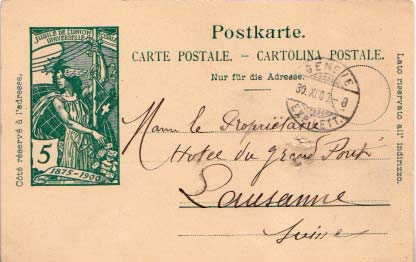 JUBILÉ DE L'UNION POSTALE
UNIVERSELLE
5
1875-1900
Côté réservé à l'adresse.
Postkarte.
CARTE POSTALE. – CARTOLINA POSTALE.
Nur für die Adresse.
GENÈVE
EXP. LETT.
Lato riservato all' indirizzo.
le Propriétaire
Hotel du Grand Pont
Lausanne
Suisse